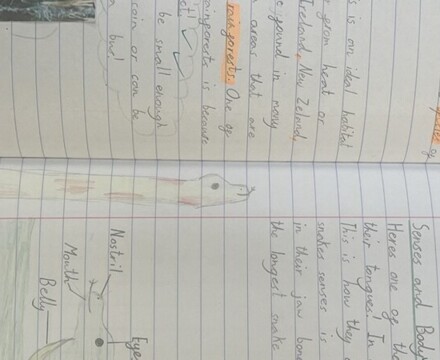 species of
is an ideal habitat
from heat or
Ireland, New Zeland,
found in many
areas that are
rainforests. One of
is because
be small enough
coin or can be
bus!
Senses and Body
Heres one of
their tongues. In
This is how they
snakes senses is
in their jaw bone
the longest snake
Nostril
Eye
Mouth
Belly